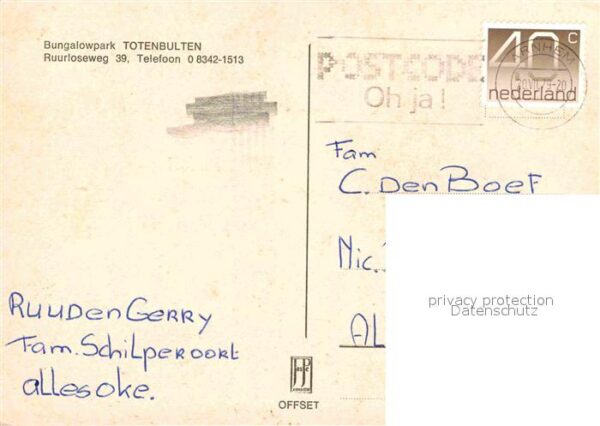 Bungalowpark TOTENBULTEN
Ruurloseweg 39, Telefoon 08342-1513
POSTCODE
Oh ja!
ARNHEM
40 c
nederland
Fam
C. Den Boef
Nic.
AL
privacy protection
Datenschutz
RUUD EN GERRY
Fam. Schilperoort
alles oke.
OFFSET